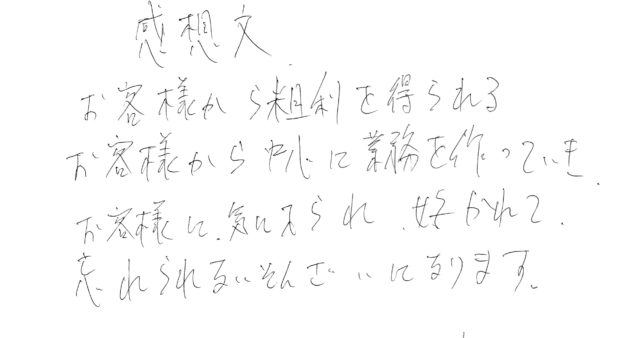 感想文
お客様から粗利を得られる
お客様から中心に業務を作っていき、
お客様に、気に入られ、好かれて、
忘れられないそんざいになります。